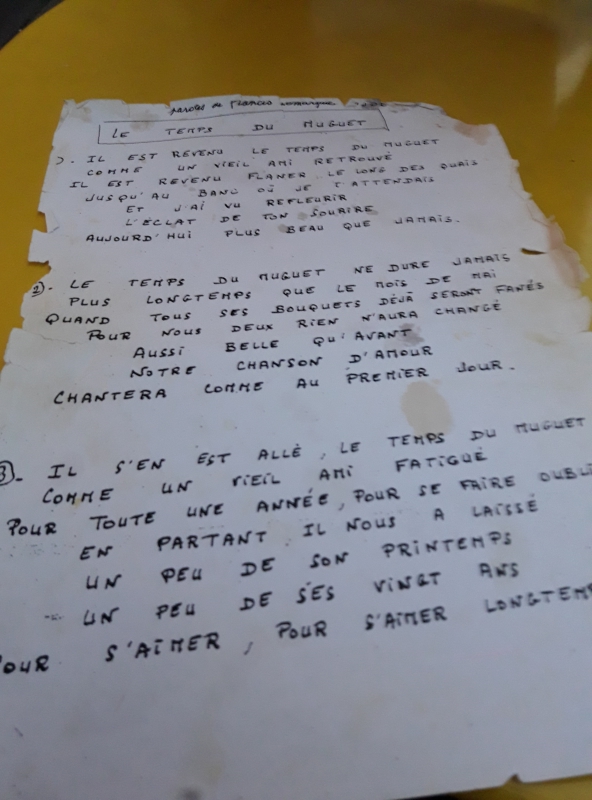 paroles de Francis Lemarque
LE TEMPS DU MUGUET
1. IL EST REVENU LE TEMPS DU MUGUET
COMME UN VIEIL AMI RETROUVÉ
IL EST REVENU FLANER LE LONG DES QUAIS
JUSQU'AU BANC OÙ JE T'ATTENDAIS
ET J'AI VU REFLEURIR
L'ÉCLAT DE TON SOURIRE
AUJOURD'HUI PLUS BEAU QUE JAMAIS.
2). LE TEMPS DU MUGUET NE DURE JAMAIS
PLUS LONGTEMPS QUE LE MOIS DE MAI
QUAND TOUS SES BOUQUETS DÉJÀ SERONT FANÉS
POUR NOUS DEUX RIEN N'AURA CHANGÉ
AUSSI BELLE QU'AVANT
NOTRE CHANSON D'AMOUR
CHANTERA COMME AU PREMIER JOUR.
3). IL S'EN EST ALLÉ, LE TEMPS DU MUGUET
COMME UN VIEIL AMI FATIGUÉ
POUR TOUTE UNE ANNÉE, POUR SE FAIRE OUBLI
EN PARTANT IL NOUS A LAISSÉ
UN PEU DE SON PRINTEMPS
UN PEU DE SES VINGT ANS
POUR S'AIMER, POUR S'AIMER LONGTEMP